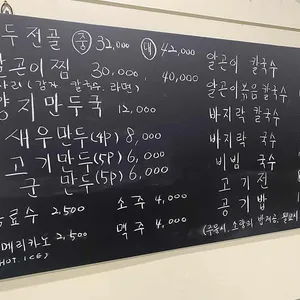 두전골 중 32,000 대 42,000
알곤이찜 30,000, 40,000
사리(감자 칼국수. 라면)
양지만두국 12,000
새우만두(4P) 8,000
고기만두(5P) 6,000
군만두(5P) 6,000
료수 2,500
소주 4,000
메리카노 2,500
맥주 4,000
HOT. ICE)
알곤이 칼국수
알곤이볶음칼국수
바지락 칼국수
바지락 국수
비빔 국수
고기전 8
공기밥 1